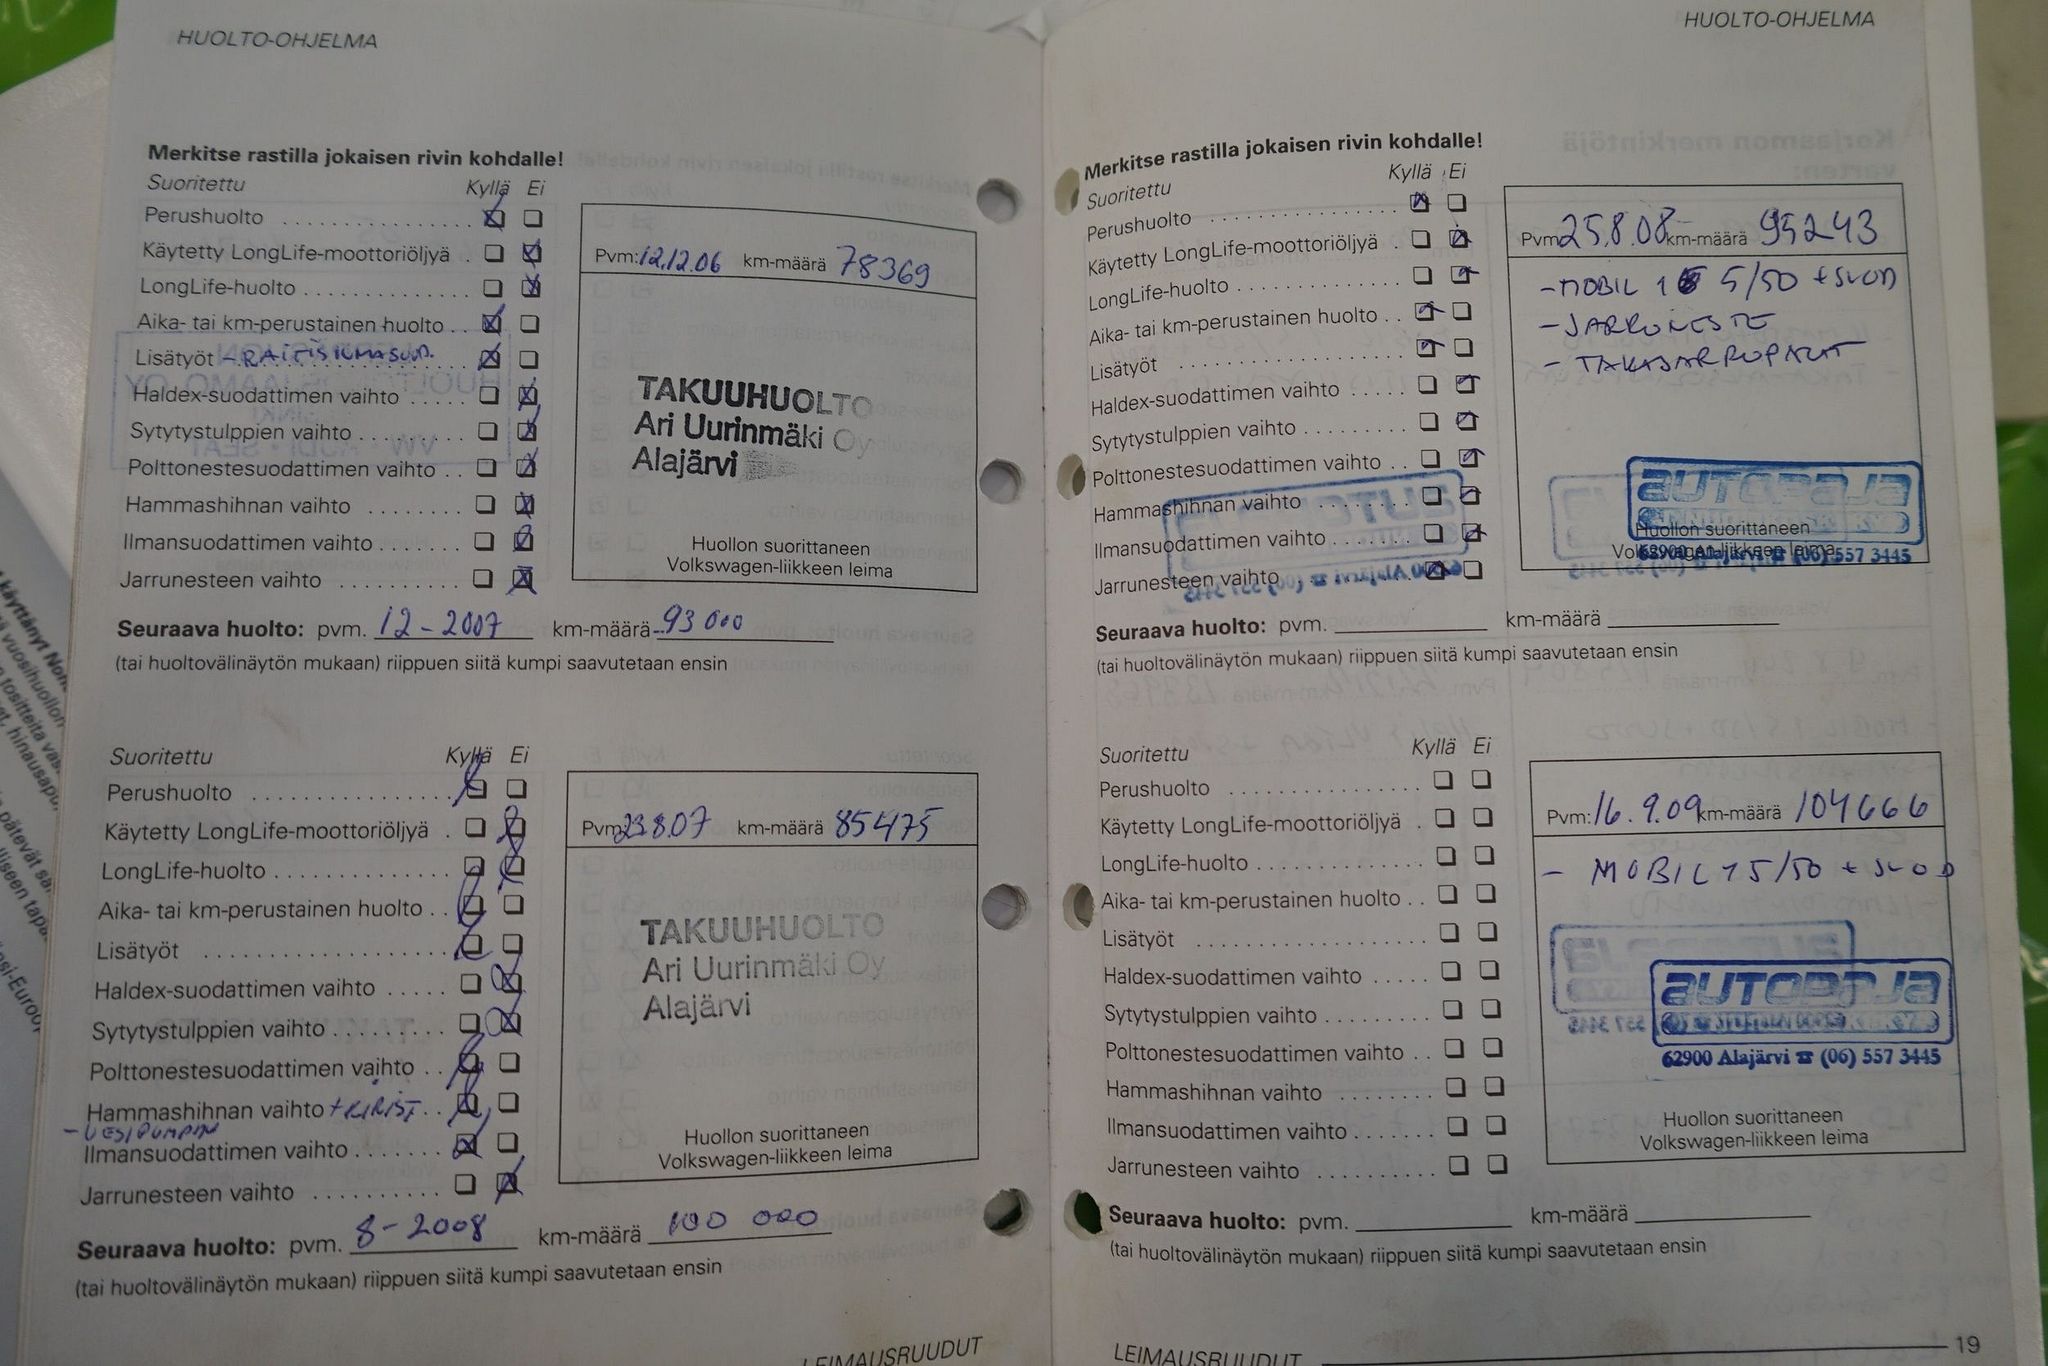 HUOLTO-OHJELMA
Merkitse rastilla jokaisen rivin kohdalle!
Suoritettu Kyllä Ei
Perushuolto
Käytetty LongLife-moottoriöljyä
LongLife-huolto
Aika- tai km-perustainen huolto
Lisätyöt - RAITISILMASUOD.
Haldex-suodattimen vaihto
Sytytystulppien vaihto
Polttonestesuodattimen vaihto
Hammashihnan vaihto
Ilmansuodattimen vaihto
Jarrunesteen vaihto
Pvm: 12.12.06 km-määrä 78369
TAKUUHUOLTO
Ari Uurinmäki Oy
Alajärvi
Huollon suorittaneen
Volkswagen-liikkeen leima
Seuraava huolto: pvm. 12-2007 km-määrä 93 000
(tai huoltovälinäytön mukaan) riippuen siitä kumpi saavutetaan ensin
Suoritettu Kyllä Ei
Perushuolto
Käytetty LongLife-moottoriöljyä
LongLife-huolto
Aika- tai km-perustainen huolto
Lisätyöt
Haldex-suodattimen vaihto
Sytytystulppien vaihto
Polttonestesuodattimen vaihto
Hammashihnan vaihto + KIRIST.
- VESIPUMPUN
Ilmansuodattimen vaihto
Jarrunesteen vaihto
Pvm: 23.8.07 km-määrä 85475
TAKUUHUOLTO
Ari Uurinmäki Oy
Alajärvi
Huollon suorittaneen
Volkswagen-liikkeen leima
Seuraava huolto: pvm. 8-2008 km-määrä 100 000
(tai huoltovälinäytön mukaan) riippuen siitä kumpi saavutetaan ensin
LEIMAUSRUUDUT
HUOLTO-OHJELMA
Merkitse rastilla jokaisen rivin kohdalle!
Suoritettu Kyllä Ei
Perushuolto
Käytetty LongLife-moottoriöljyä
LongLife-huolto
Aika- tai km-perustainen huolto
Lisätyöt
Haldex-suodattimen vaihto
Sytytystulppien vaihto
Polttonestesuodattimen vaihto
Hammashihnan vaihto
Ilmansuodattimen vaihto
Jarrunesteen vaihto
Pvm: 25.8.08 km-määrä 95243
- MOBIL 1 5/50 + SUOD
- JARRUNESTE
- TAKAJARRUPALAT
AUTOPAJA
Huollon suorittaneen
Volkswagen-liikkeen leima
62900 Alajärvi ☎ (06) 557 3445
Seuraava huolto: pvm. km-määrä
(tai huoltovälinäytön mukaan) riippuen siitä kumpi saavutetaan ensin
Suoritettu Kyllä Ei
Perushuolto
Käytetty LongLife-moottoriöljyä
LongLife-huolto
Aika- tai km-perustainen huolto
Lisätyöt
Haldex-suodattimen vaihto
Sytytystulppien vaihto
Polttonestesuodattimen vaihto
Hammashihnan vaihto
Ilmansuodattimen vaihto
Jarrunesteen vaihto
Pvm: 16.9.09 km-määrä 104666
- MOBIL 1 5/50 + SUOD
AUTOPAJA
62900 Alajärvi ☎ (06) 557 3445
Huollon suorittaneen
Volkswagen-liikkeen leima
Seuraava huolto: pvm. km-määrä
(tai huoltovälinäytön mukaan) riippuen siitä kumpi saavutetaan ensin
LEIMAUSRUUDUT 19